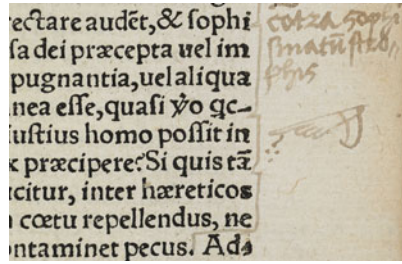 rectare audēt,& sophi
sa dei præcepta uel im
pugnantia,uel aliqua
nea esse,quasi ꝟo qc-
iustius homo possit in
præcipere?Si quis tā
citur, inter hæreticos
cœtu repellendus, ne
ontaminet pecus. Ad
cōtra sophi
smatū stro„
phis